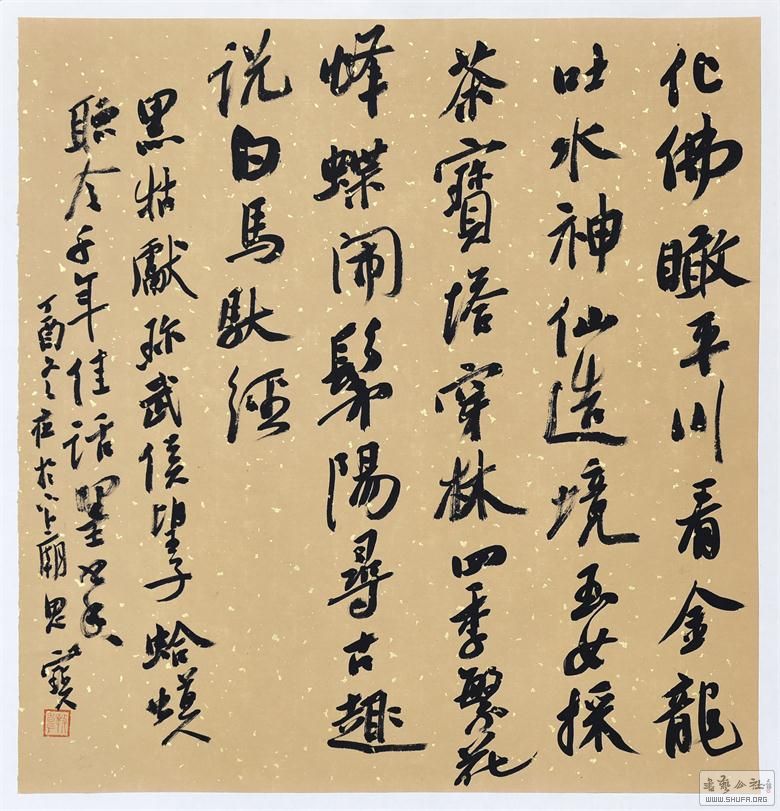 化佛瞰平川看金龍
吐水神仙造境玉女採
茶寶塔穿林四季繁花
蜂蝶闹鬆陽尋古趣
说白馬馱經
黑牯獻珍武侯望子蛤蟆
聽令千年佳話墨
丁酉冬 於 廟思寶
書藝公社
WWW.SHUFA.ORG